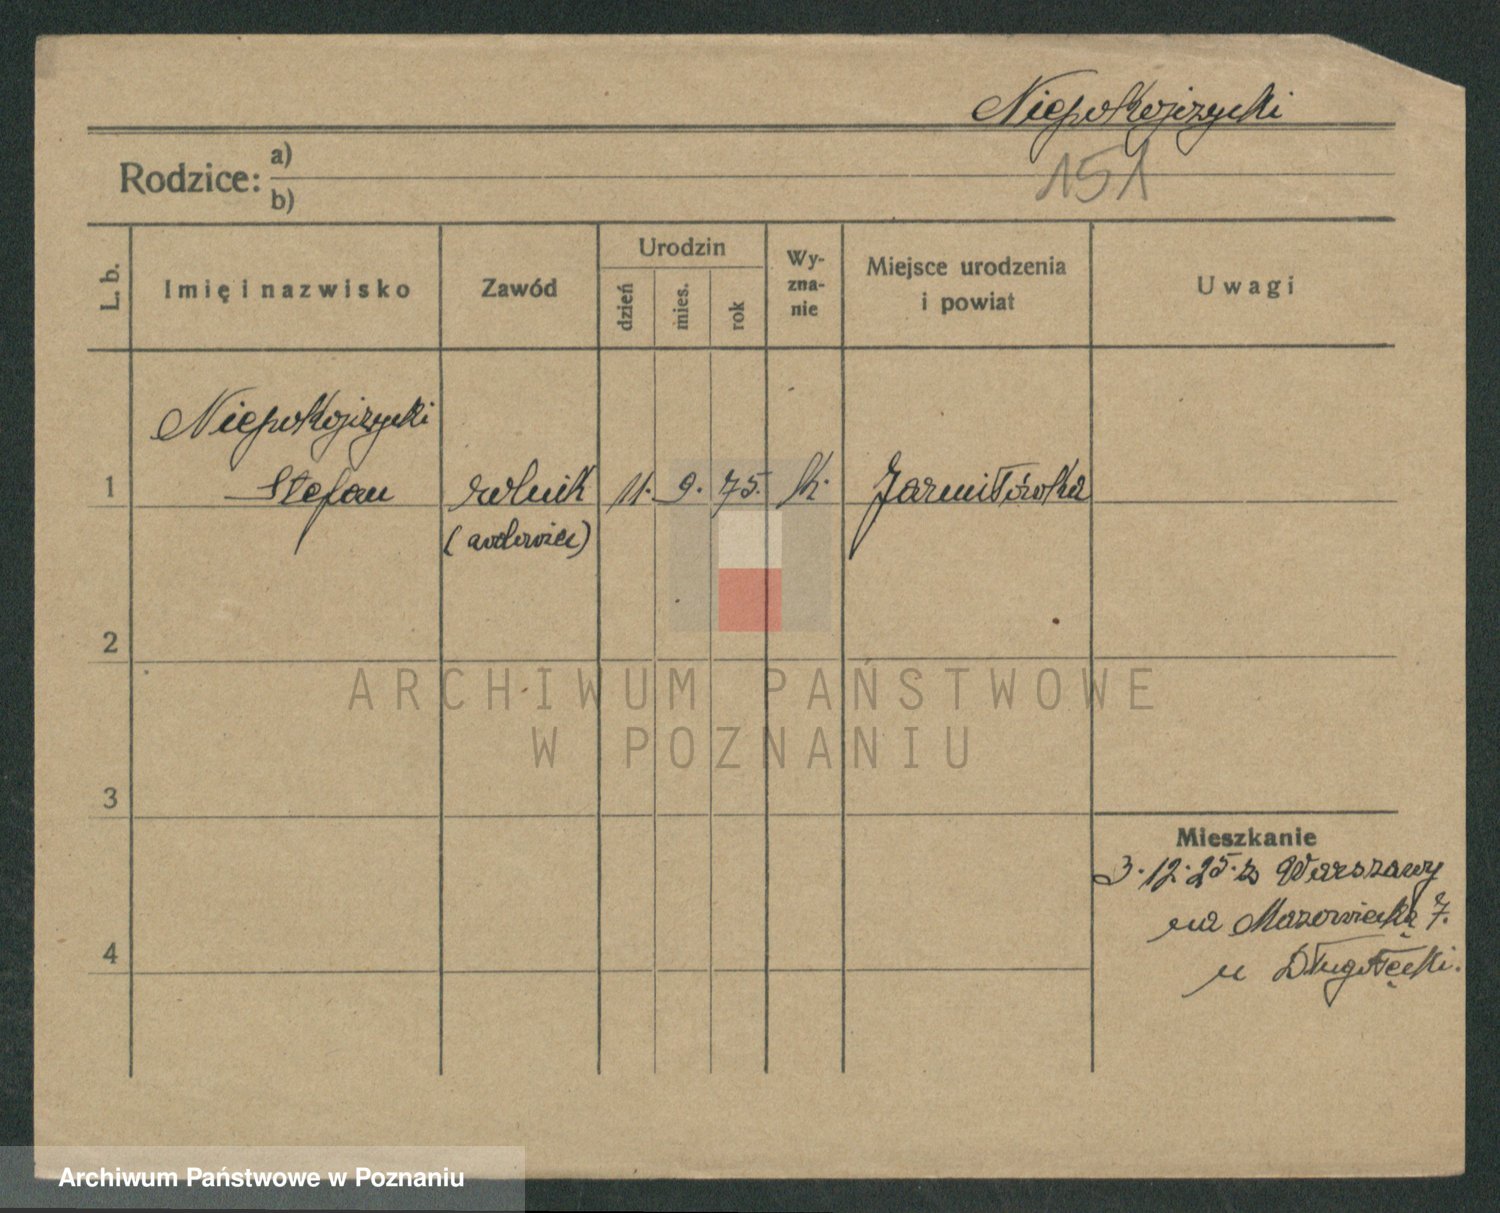 Niepokojczycki
151
Rodzice:
a)
b)
L. b.
Imię i nazwisko
Zawód
Urodzin
dzień
mies.
rok
Wy-
zna-
nie
Miejsce urodzenia
i powiat
Uwagi
Niepokojczycki
1 Stefan rolnik 11. 9. 75. k. Jarmiłówka
(wdowiec)
2
ARCHIWUM PAŃSTWOWE
W POZNANIU
3
Mieszkanie
3.12.25. z Warszawy
na Mazowiecką 7.
u Długołęcki.
4
Archiwum Państwowe w Poznaniu